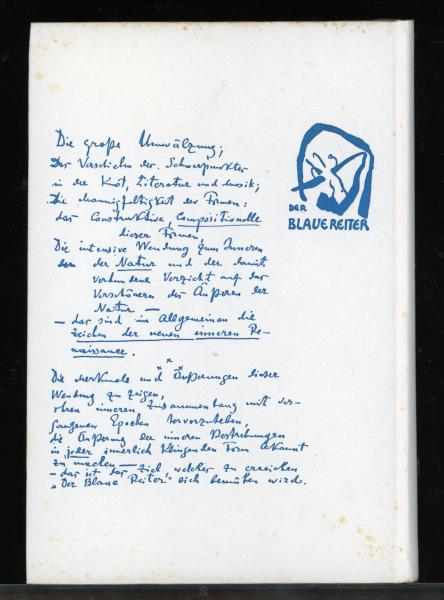 Die große Umwälzung;
Das Verschieben der Schwerpunkte
in der Kunst, Literatur und Musik;
Die Mannigfaltigkeit der Formen:
das Constructive, Compositionelle
dieser Formen;
Die intensive Wendung zum Inneren
der Natur und der damit
verbundene Verzicht auf das
Verschönern des Äußeren der
Natur —
— das sind im Allgemeinen die
Zeichen der neuen inneren Re-
naissance.
Die Merkmale und Äußerungen dieser
Wendung zu zeigen,
ihren inneren Zusammenhang mit ver-
gangenen Epochen hervorzuheben,
die Äußerung der inneren Bestrebungen
in jeder innerlich klingenden Form bekannt
zu machen —
— das ist das Ziel, welches zu erreichen
„Der Blaue Reiter" sich bemühen wird.
DER
BLAUE REITER